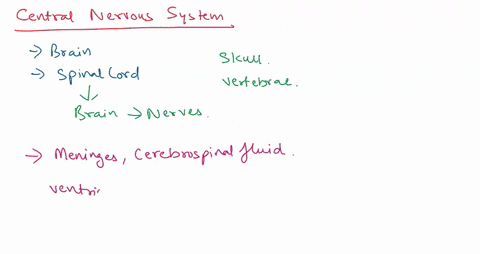 Central Nervous System
→ Brain
→ Spinal Cord
Skull.
Vertebrae.
↓
Brain → Nerves.
→ Meninges, Cerebrospinal fluid.
ventri